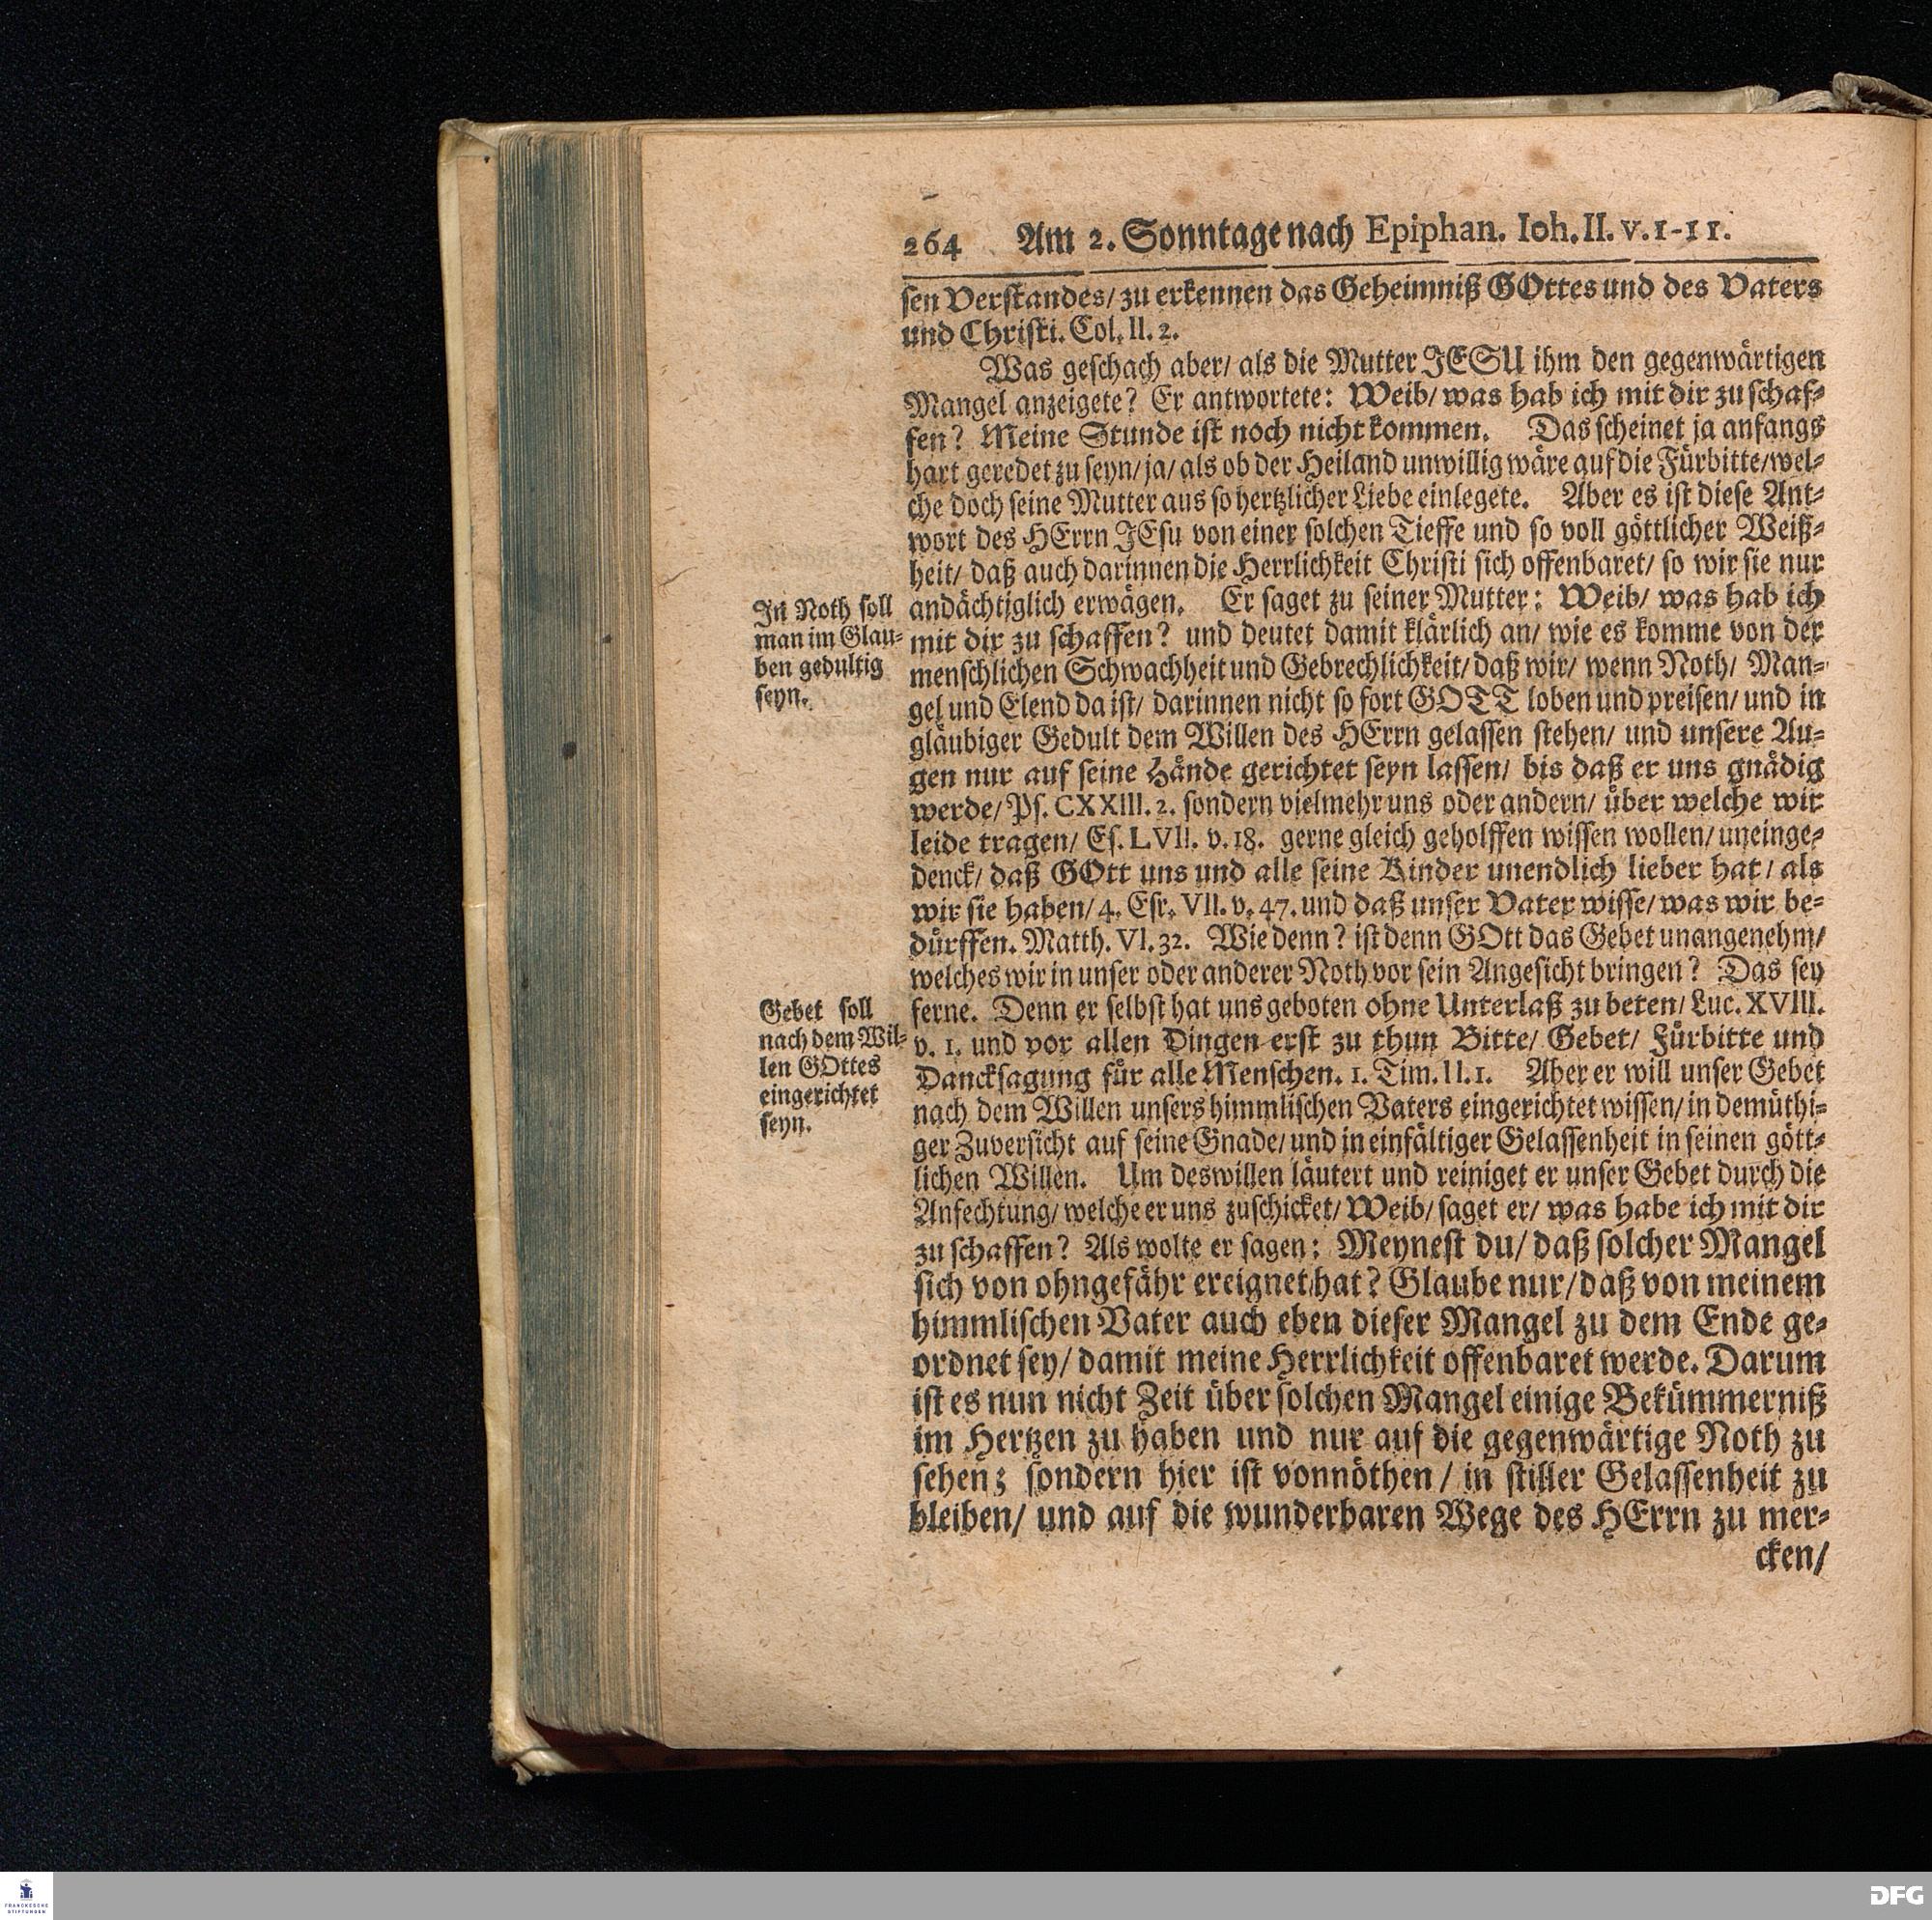 264 Am 2. Sonntage nach Epiphan. Ioh. II. v. 1-11.
sen Verstandes/ zu erkennen das Geheimniß GOttes und des Vaters
und Christi. Col. II. 2.
Was geschach aber/ als die Mutter JESU ihm den gegenwärtigen
Mangel anzeigete? Er antwortete: Weib/ was hab ich mit dir zu schaf-
fen? Meine Stunde ist noch nicht kommen. Das scheinet ja anfangs
hart geredet zu seyn/ ja/ als ob der Heiland unwillig wäre auf die Fürbitte/ wel-
che doch seine Mutter aus so hertzlicher Liebe einlegete. Aber es ist diese Ant-
wort des HErrn JEsu von einer solchen Tieffe und so voll göttlicher Weiß-
heit/ daß auch darinnen die Herrlichkeit Christi sich offenbaret/ so wir sie nur
andächtiglich erwägen. Er saget zu seiner Mutter: Weib/ was hab ich
mit dir zu schaffen? und deutet damit klärlich an/ wie es komme von der
menschlichen Schwachheit und Gebrechlichkeit/ daß wir/ wenn Noth/ Man-
gel und Elend da ist/ darinnen nicht so fort GOTT loben und preisen/ und in
gläubiger Gedult dem Willen des HErrn gelassen stehen/ und unsere Au-
gen nur auf seine Hände gerichtet seyn lassen/ bis daß er uns gnädig
werde/ Ps. CXXIII. 2. sondern vielmehr uns oder andern/ über welche wir
leide tragen/ Es. LVII. v. 18. gerne gleich geholffen wissen wollen/ uneinge-
denck/ daß GOtt uns und alle seine Kinder unendlich lieber hat/ als
wir sie haben/ 4. Esr. VII. v. 47. und daß unser Vater wisse/ was wir be-
dürffen. Matth. VI. 32. Wie denn? ist denn GOtt das Gebet unangenehm/
welches wir in unser oder anderer Noth vor sein Angesicht bringen? Das sey
ferne. Denn er selbst hat uns geboten ohne Unterlaß zu beten/ Luc. XVIII.
v. 1. und vor allen Dingen erst zu thun Bitte/ Gebet/ Fürbitte und
Dancksagung für alle Menschen. 1. Tim. II. 1. Aber er will unser Gebet
nach dem Willen unsers himmlischen Vaters eingerichtet wissen/ in demüthi-
ger Zuversicht auf seine Gnade/ und in einfältiger Gelassenheit in seinen gött-
lichen Willen. Um deswillen läutert und reiniget er unser Gebet durch die
Anfechtung/ welche er uns zuschicket/ Weib/ saget er/ was habe ich mit dir
zu schaffen? Als wolte er sagen: Meynest du/ daß solcher Mangel
sich von ohngefähr ereignet hat? Glaube nur/ daß von meinem
himmlischen Vater auch eben dieser Mangel zu dem Ende ge-
ordnet sey/ damit meine Herrlichkeit offenbaret werde. Darum
ist es nun nicht Zeit über solchen Mangel einige Bekümmerniß
im Hertzen zu haben und nur auf die gegenwärtige Noth zu
sehen; sondern hier ist vonnöthen/ in stiller Gelassenheit zu
bleiben/ und auf die wunderbaren Wege des HErrn zu mer-
cken/
In Noth soll
man im Glau-
ben gedultig
seyn.
Gebet soll
nach dem Wil-
len GOttes
eingerichtet
seyn.
FRANCKESCHE
STIFTUNGEN
DFG